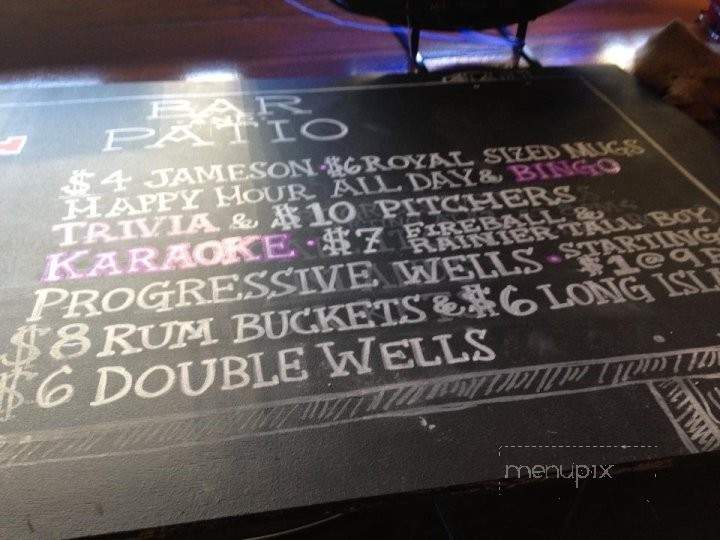 BAR
PATIO
$4 JAMESON · $6 ROYAL SIZED MUGS
HAPPY HOUR ALL DAY & BINGO
TRIVIA & $10 PITCHERS
KARAOKE · $7 FIREBALL &
RAINIER TALL BOY
PROGRESSIVE WELLS · STARTING
$1@9P
$8 RUM BUCKETS & $6 LONG ISL
$6 DOUBLE WELLS
menupix